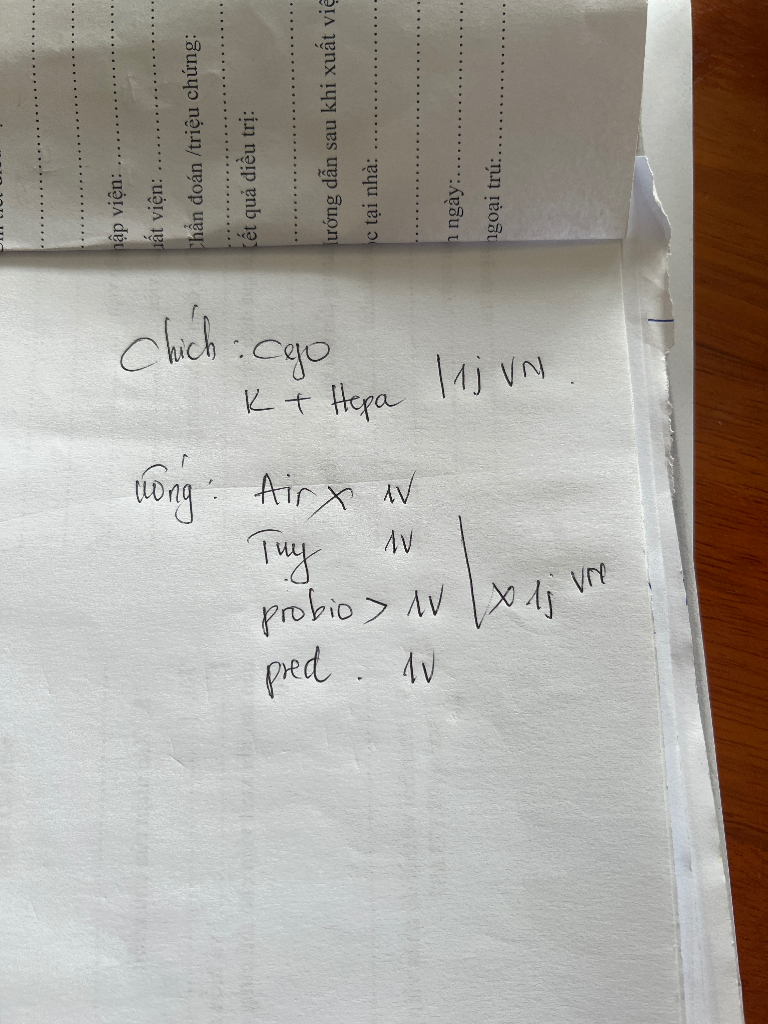 ập viện:
ất viện:
hẩn đoán /triệu chứng:
ết quả điều trị:
ướng dẫn sau khi xuất việ
c tại nhà:
n ngày:
goại trú:
Chích : Cefo
K + Hepa | 1j VN .
Uống : Air X 1V
Tụy 1V
probio > 1V x 1j VN
pred . 1V